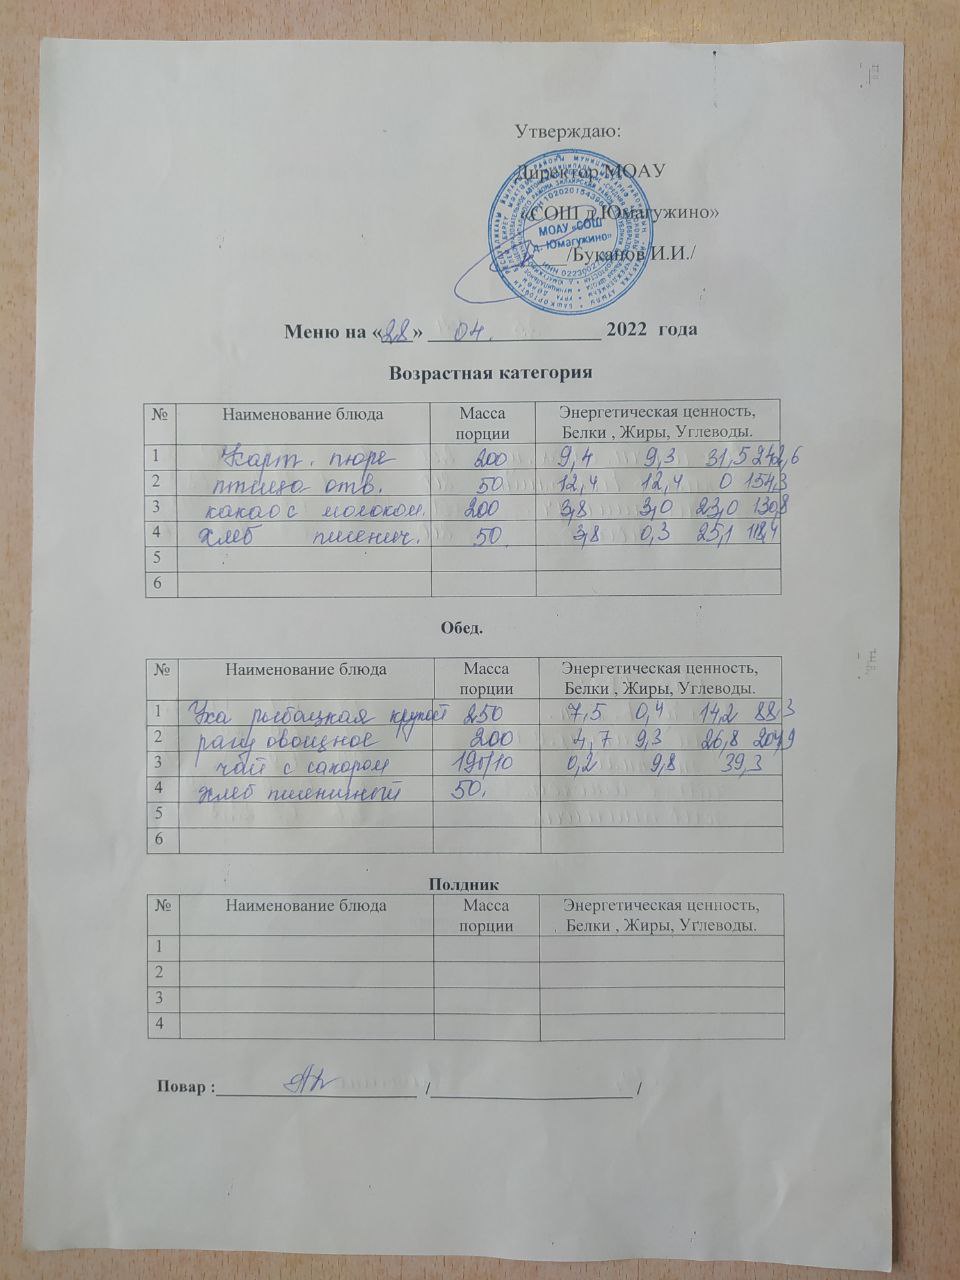 Утверждаю:
Директор МОАУ
«СОШ д.Юмагужино»
/Буканов И.И./
МОАУ «СОШ
д. Юмагужино»
Меню на «28» 04. 2022 года
Возрастная категория
№ Наименование блюда Масса порции Энергетическая ценность, Белки , Жиры, Углеводы.
1 Карт. пюре 200 9,4 9,3 31,5 242,6
2 птица отв. 50 12,4 12,4 0 154,3
3 какао с молоком. 200 3,8 3,0 23,0 130,8
4 хлеб пшенич. 50 3,8 0,3 25,1 118,4
5
6
Обед.
№ Наименование блюда Масса порции Энергетическая ценность, Белки , Жиры, Углеводы.
1 Уха рыбацкая 250 7,5 0,4 14,2 88,3
2 рагу овощное 200 4,7 9,3 26,8 204,9
3 чай с сахором 190/10 0,2 9,8 39,3
4 хлеб пшеничный 50.
5
6
Полдник
№ Наименование блюда Масса порции Энергетическая ценность, Белки , Жиры, Углеводы.
1
2
3
4
Повар : / /